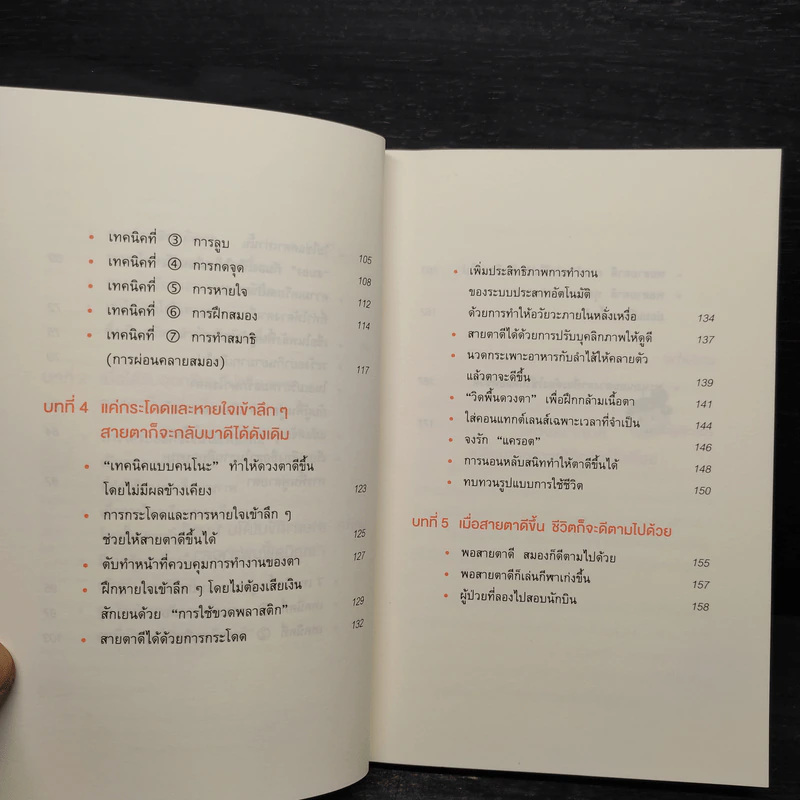 • เทคนิคที่ ③ การลูบ 105
• เทคนิคที่ ④ การกดจุด 108
• เทคนิคที่ ⑤ การหายใจ 112
• เทคนิคที่ ⑥ การฝึกสมอง 114
• เทคนิคที่ ⑦ การทำสมาธิ
(การผ่อนคลายสมอง) 117
บทที่ 4 แค่กระโดดและหายใจเข้าลึก ๆ
สายตาก็จะกลับมาดีได้ดังเดิม
• "เทคนิคแบบคนโนะ" ทำให้ดวงตาดีขึ้น
โดยไม่มีผลข้างเคียง 123
• การกระโดดและการหายใจเข้าลึก ๆ
ช่วยให้สายตาดีขึ้นได้ 125
• ตับทำหน้าที่ควบคุมการทำงานของตา 127
• ฝึกหายใจเข้าลึก ๆ โดยไม่ต้องเสียเงิน
สักเยนด้วย "การใช้ขวดพลาสติก" 129
• สายตาดีได้ด้วยการกระโดด 132
• เพิ่มประสิทธิภาพการทำงาน
ของระบบประสาทอัตโนมัติ
ด้วยการทำให้อวัยวะภายในหลั่งเหงื่อ 134
• สายตาดีได้ด้วยการปรับบุคลิกภาพให้ดูดี 137
• นวดกระเพาะอาหารกับลำไส้ให้คลายตัว
แล้วตาจะดีขึ้น 139
• "วิดพื้นดวงตา" เพื่อฝึกกล้ามเนื้อตา 141
• ใส่คอนแทกต์เลนส์เฉพาะเวลาที่จำเป็น 144
• จงรัก "แครอต" 146
• การนอนหลับสนิททำให้ตาดีขึ้นได้ 148
• ทบทวนรูปแบบการใช้ชีวิต 150
บทที่ 5 เมื่อสายตาดีขึ้น ชีวิตก็จะดีตามไปด้วย
• พอสายตาดี สมองก็ดีตามไปด้วย 155
• พอสายตาดีก็เล่นกีฬาเก่งขึ้น 157
• ผู้ป่วยที่ลองไปสอบนักบิน 158